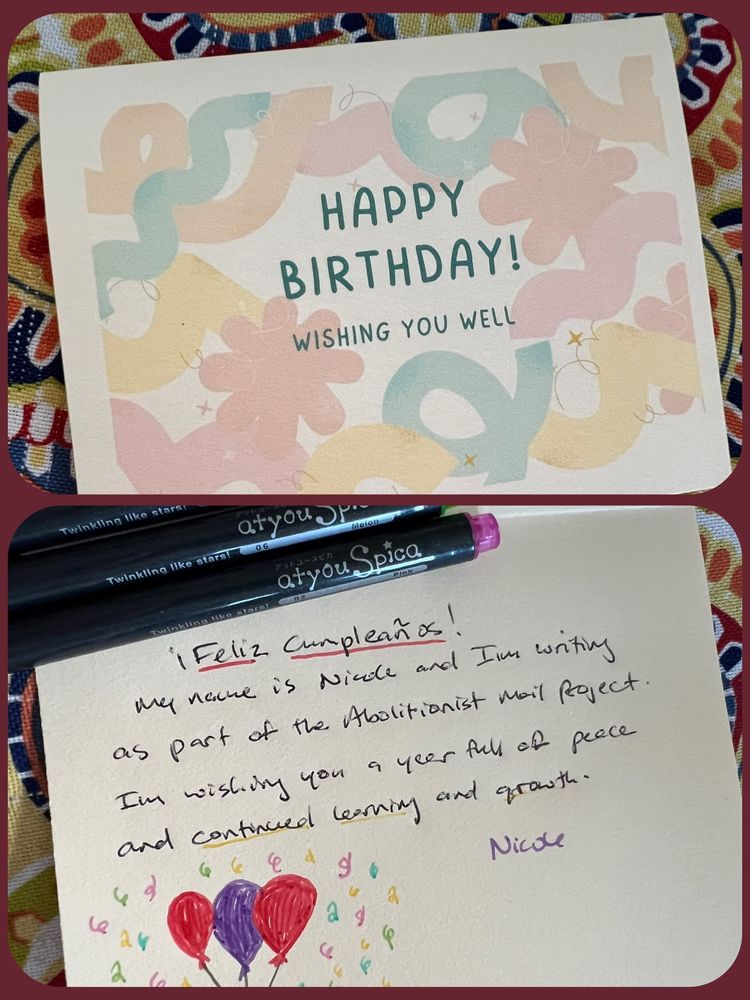 HAPPY
BIRTHDAY!
WISHING YOU WELL
Twinkling like stars!
atyouSpica
06 Melon
Twinkling like stars!
アットユースピカ
atyouSpica
02 Pink
Twinkling like stars!
¡Feliz Cumpleaños!
My name is Nicole and I'm writing
as part of the Abolitionist Mail Project.
I'm wishing you a year full of peace
and continued learning and growth.
Nicole